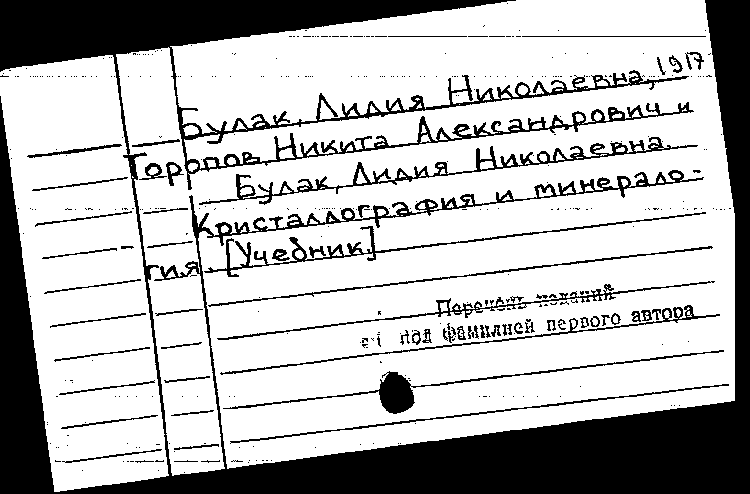 Булак, Лидия Николаевна, 1917
Торопов, Никита Александрович и
Булак, Лидия Николаевна.
Кристаллография и минерало-
гия. [Учебник.]
Перечень изданий
под фамилией первого автора